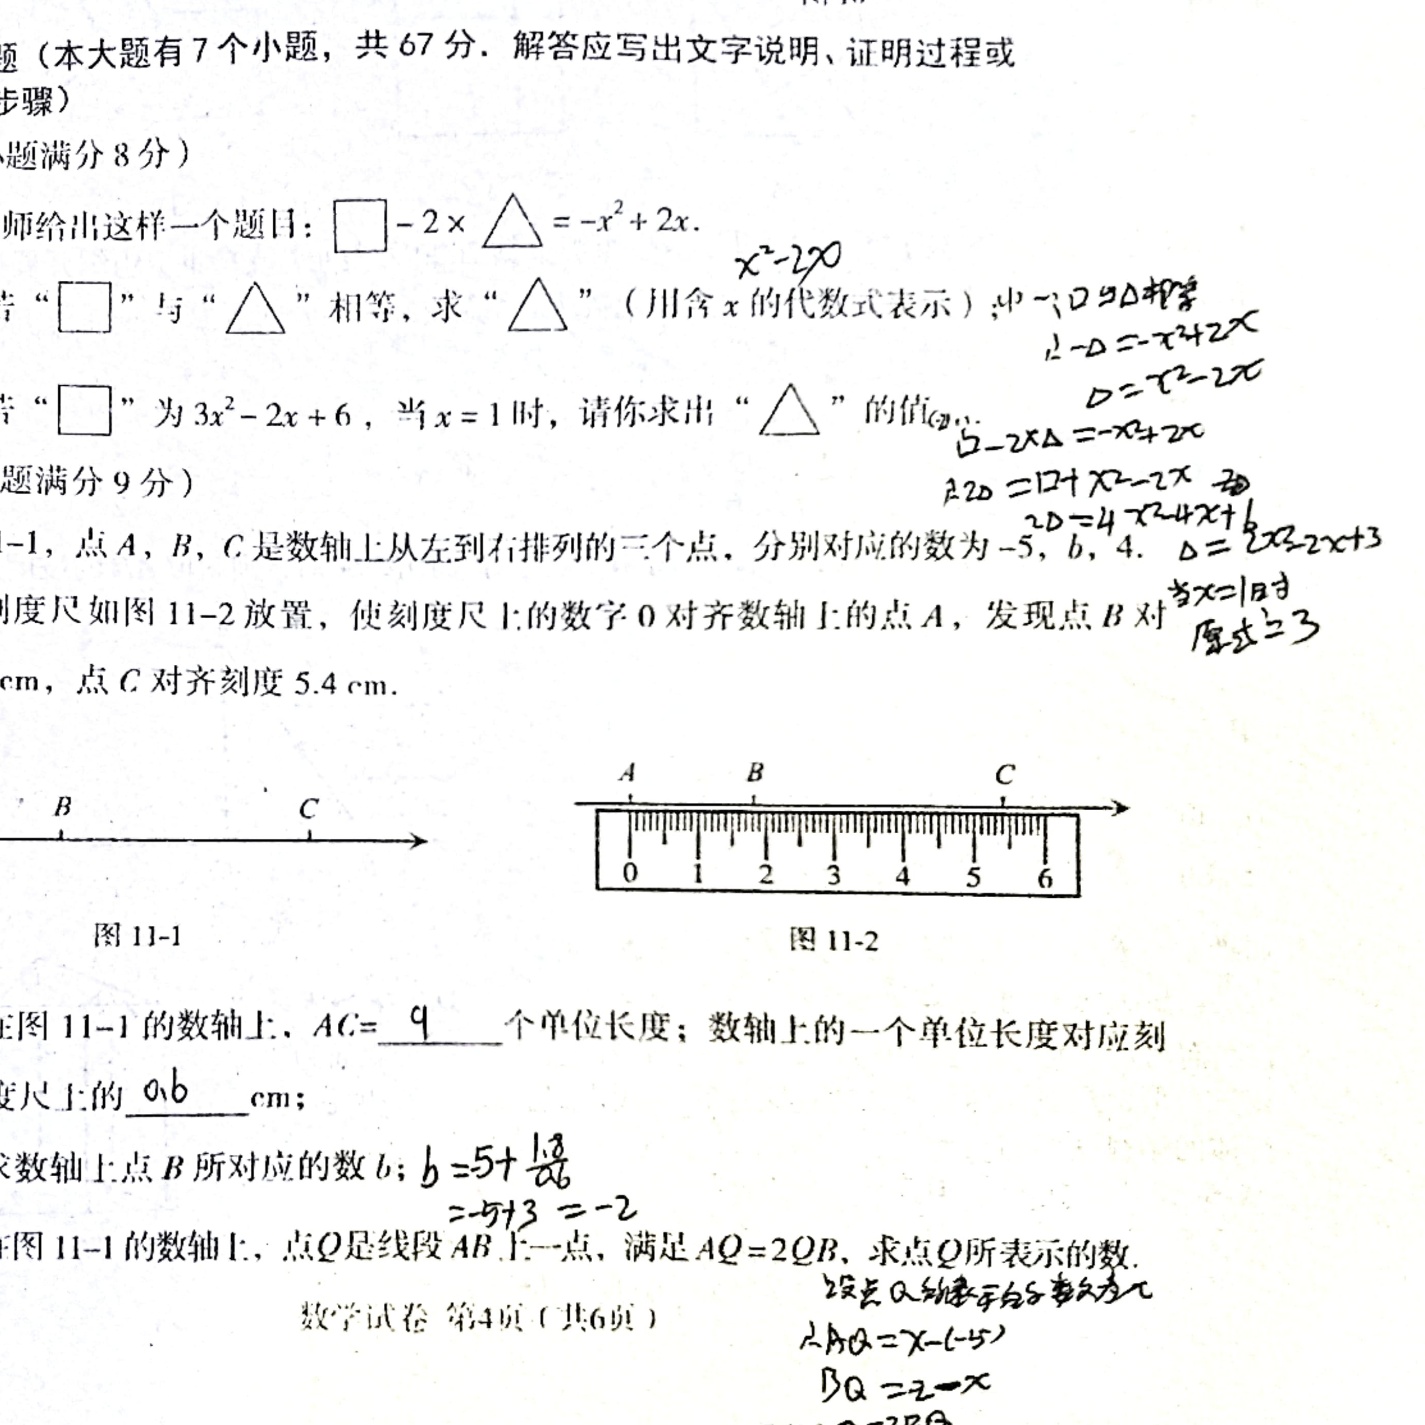 题（本大题有7个小题，共67分．解答应写出文字说明、证明过程或
步骤）
小题满分8分）
师给出这样一个题目：□－2×△＝－x²＋2x．
x²-2x
若“□”与“△”相等，求“△”（用含x的代数式表示）；
∵□与△相等
∴-△=-x²+2x
△=x²-2x
若“□”为3x²－2x＋6，当x＝1时，请你求出“△”的值．
(2)
□-2×△=-x²+2x
∴2△=□+x²-2x
2△=4x²-4x+6
△=2x²-2x+3
当x=1时
原式=3
题满分9分）
1-1，点A，B，C是数轴上从左到右排列的三个点，分别对应的数为－5，b，4．
刻度尺如图11-2放置，使刻度尺上的数字0对齐数轴上的点A，发现点B对
cm，点C对齐刻度5.4 cm．
A B C
B C
0 1 2 3 4 5 6
图11-1
图11-2
在图11-1的数轴上，AC=9个单位长度；数轴上的一个单位长度对应刻
度尺上的0.6cm；
求数轴上点B所对应的数b；b=-5+1.8/0.6
=-5+3=-2
在图11-1的数轴上，点Q是线段AB上一点，满足AQ=2QB，求点Q所表示的数．
设点Q所表示的数为x
数学试卷 第4页（共6页）
∴AQ=x-(-5)
BQ=-2-x